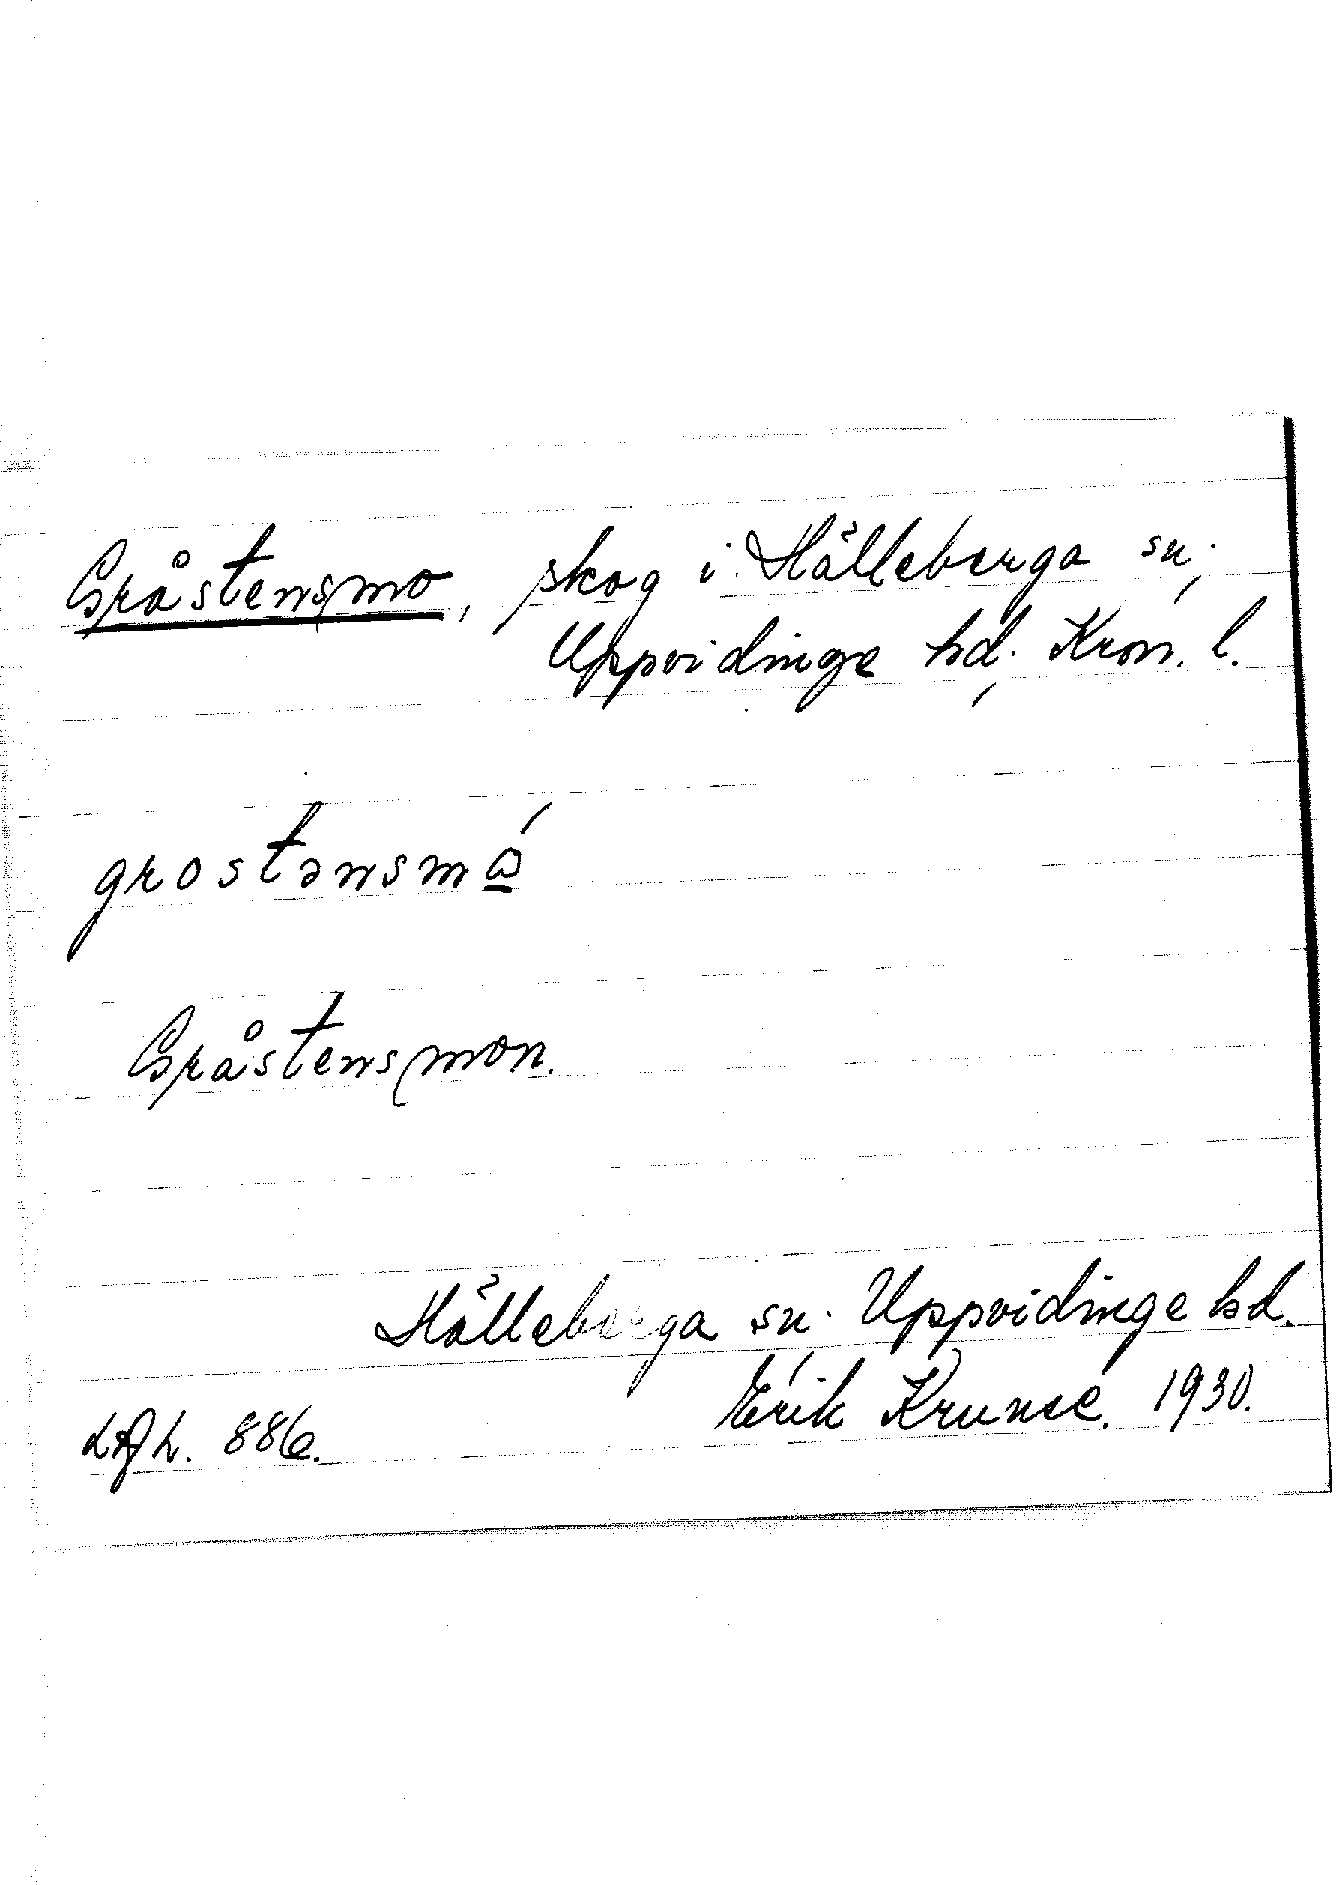 Gråstensmo, skog i Hälleberga sn,
Uppvidinge hd, Kron. l.
grostənsmó
Gråstensmon.
Hälleberga sn. Uppvidinge hd.
Erik Krunse. 1930.
LAL. 886.